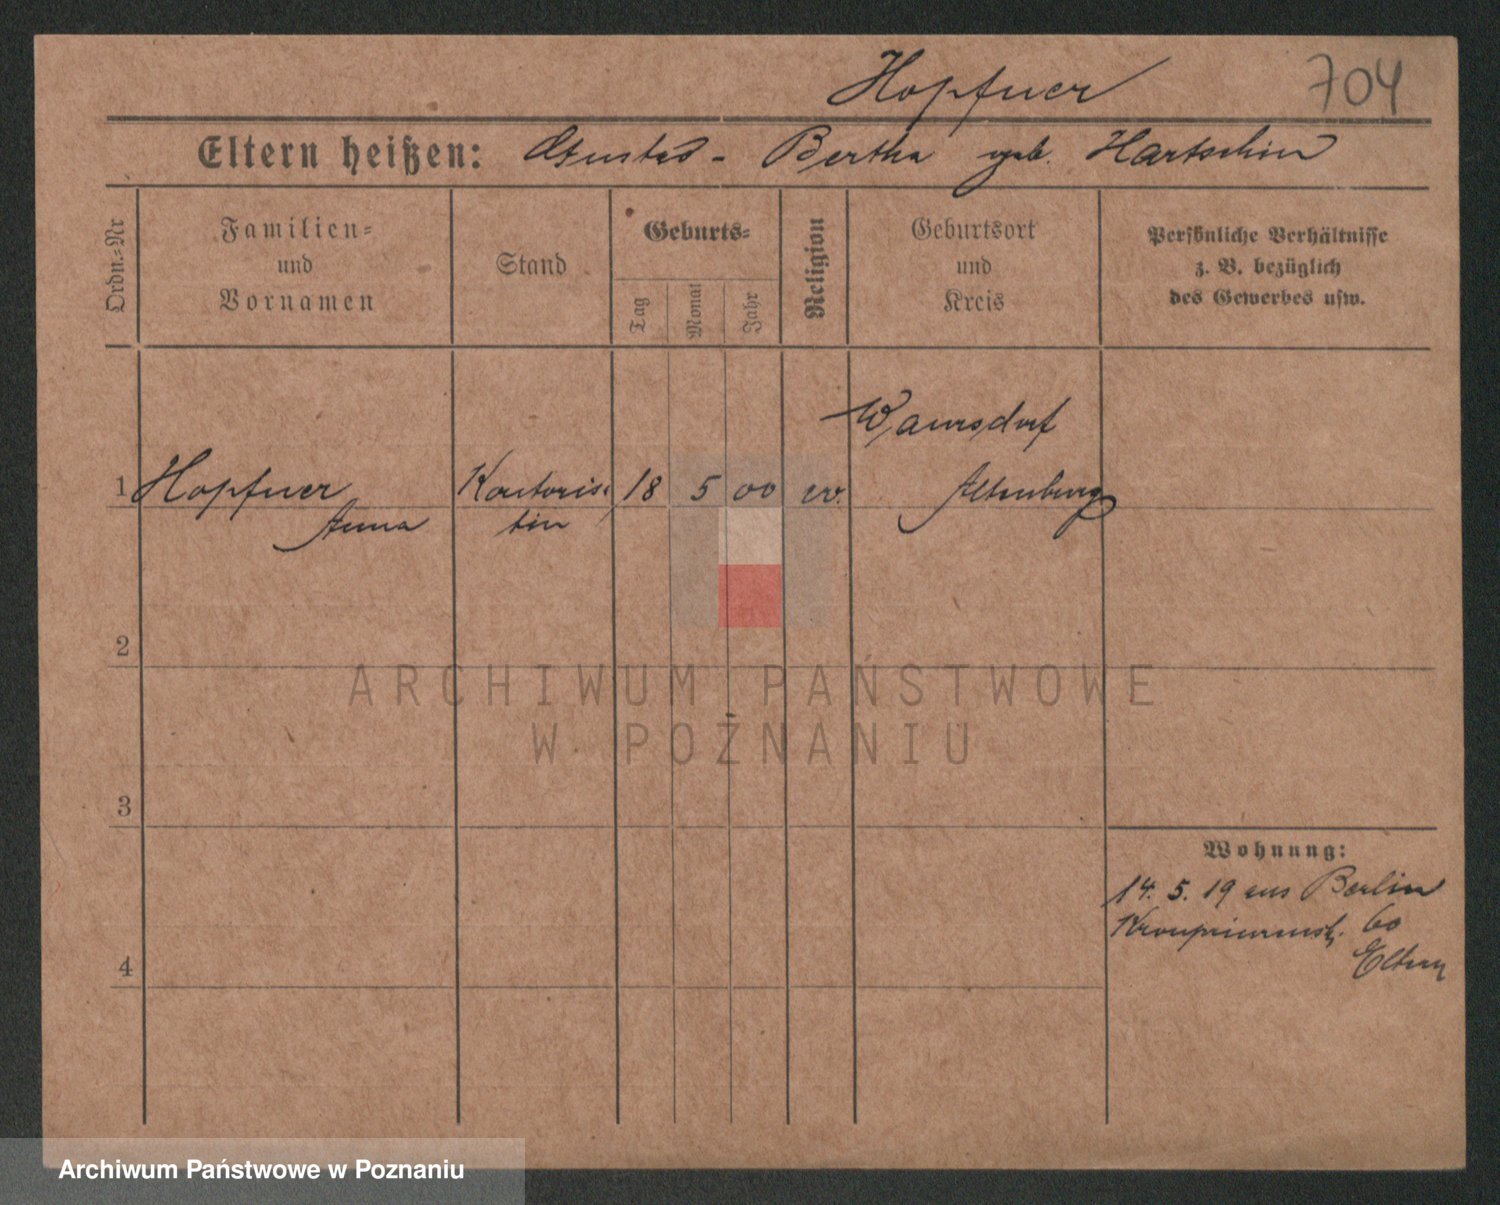 Hopfner
704
Eltern heißen: Gustav - Bertha geb. Hartschin
Ordn.-Nr
Familien-
und
Vornamen
Stand
Geburts-
Tag
Monat
Jahr
Religion
Geburtsort
und
Kreis
Persönliche Verhältnisse
z. B. bezüglich
des Gewerbes usw.
1 Hopfner Kontoris- 18 5 00 ev.
Anna tin
Altenburg
2
3
4
ARCHIWUM PAŃSTWOWE
W POZNANIU
Wohnung:
14. 5. 19 aus Berlin
Kronprinzenstr. 60
Eltern
Archiwum Państwowe w Poznaniu